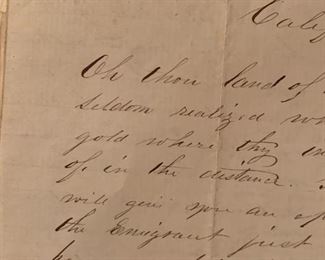 Calif
Oh thou land of
seldom realized wh
gold where thy in
of in the distance.
will give you an of
the Emigrant just